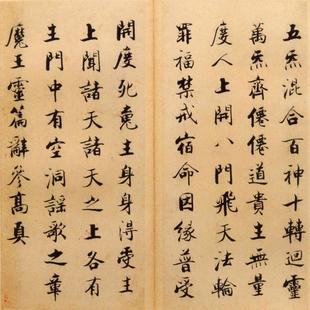 五炁混合百神十轉迴靈
萬炁齊僊僊道貴生無量
度人上開八門飛天法輪
罪福禁戒宿命因緣普受
開度死魂生身身得受生
上聞諸天諸天之上各有
生門中有空洞謠歌之章
魔王靈篇辭參髙真